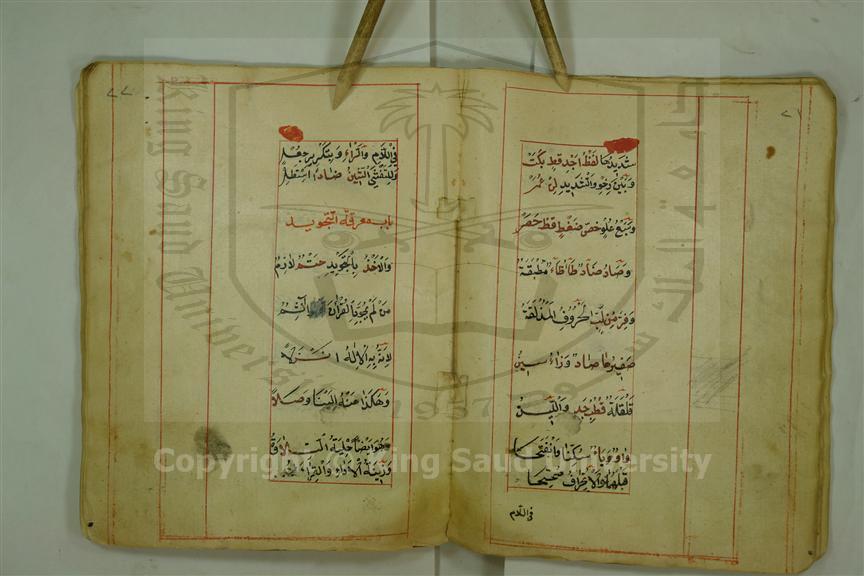 شديدها لفظ اجد قط بكت
وبين رخو والشديد لن عمر
وسبع علو خص ضغط قظ حصر
وصاد ضاد طاء ظاء مطبقة
وفر من لب الحروف المذلقة
صفيرها صاد وزاء سين
قلقلة قطب جد واللين
واو وياء سكنا وانفتحا
قبلهما والانحراف صححا
في اللام
في اللام والراء وبتكرير جعل
وللتفشي الشين ضادا استطل
باب معرفة التجويد
والاخذ بالتجويد حتم لازم
من لم يجود القران اثم
لانه به الاله انزلا
وهكذا منه الينا وصلا
وهو ايضا حلية التلاوة
وزينة الاداء والقراءة
Copyright © King Saud University
King Saud University
1957